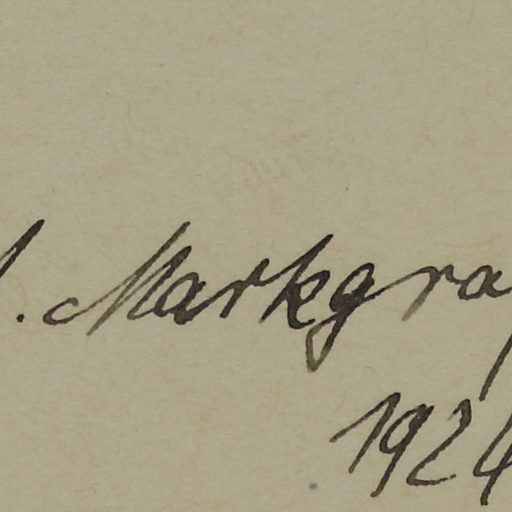 . Markgra
1924